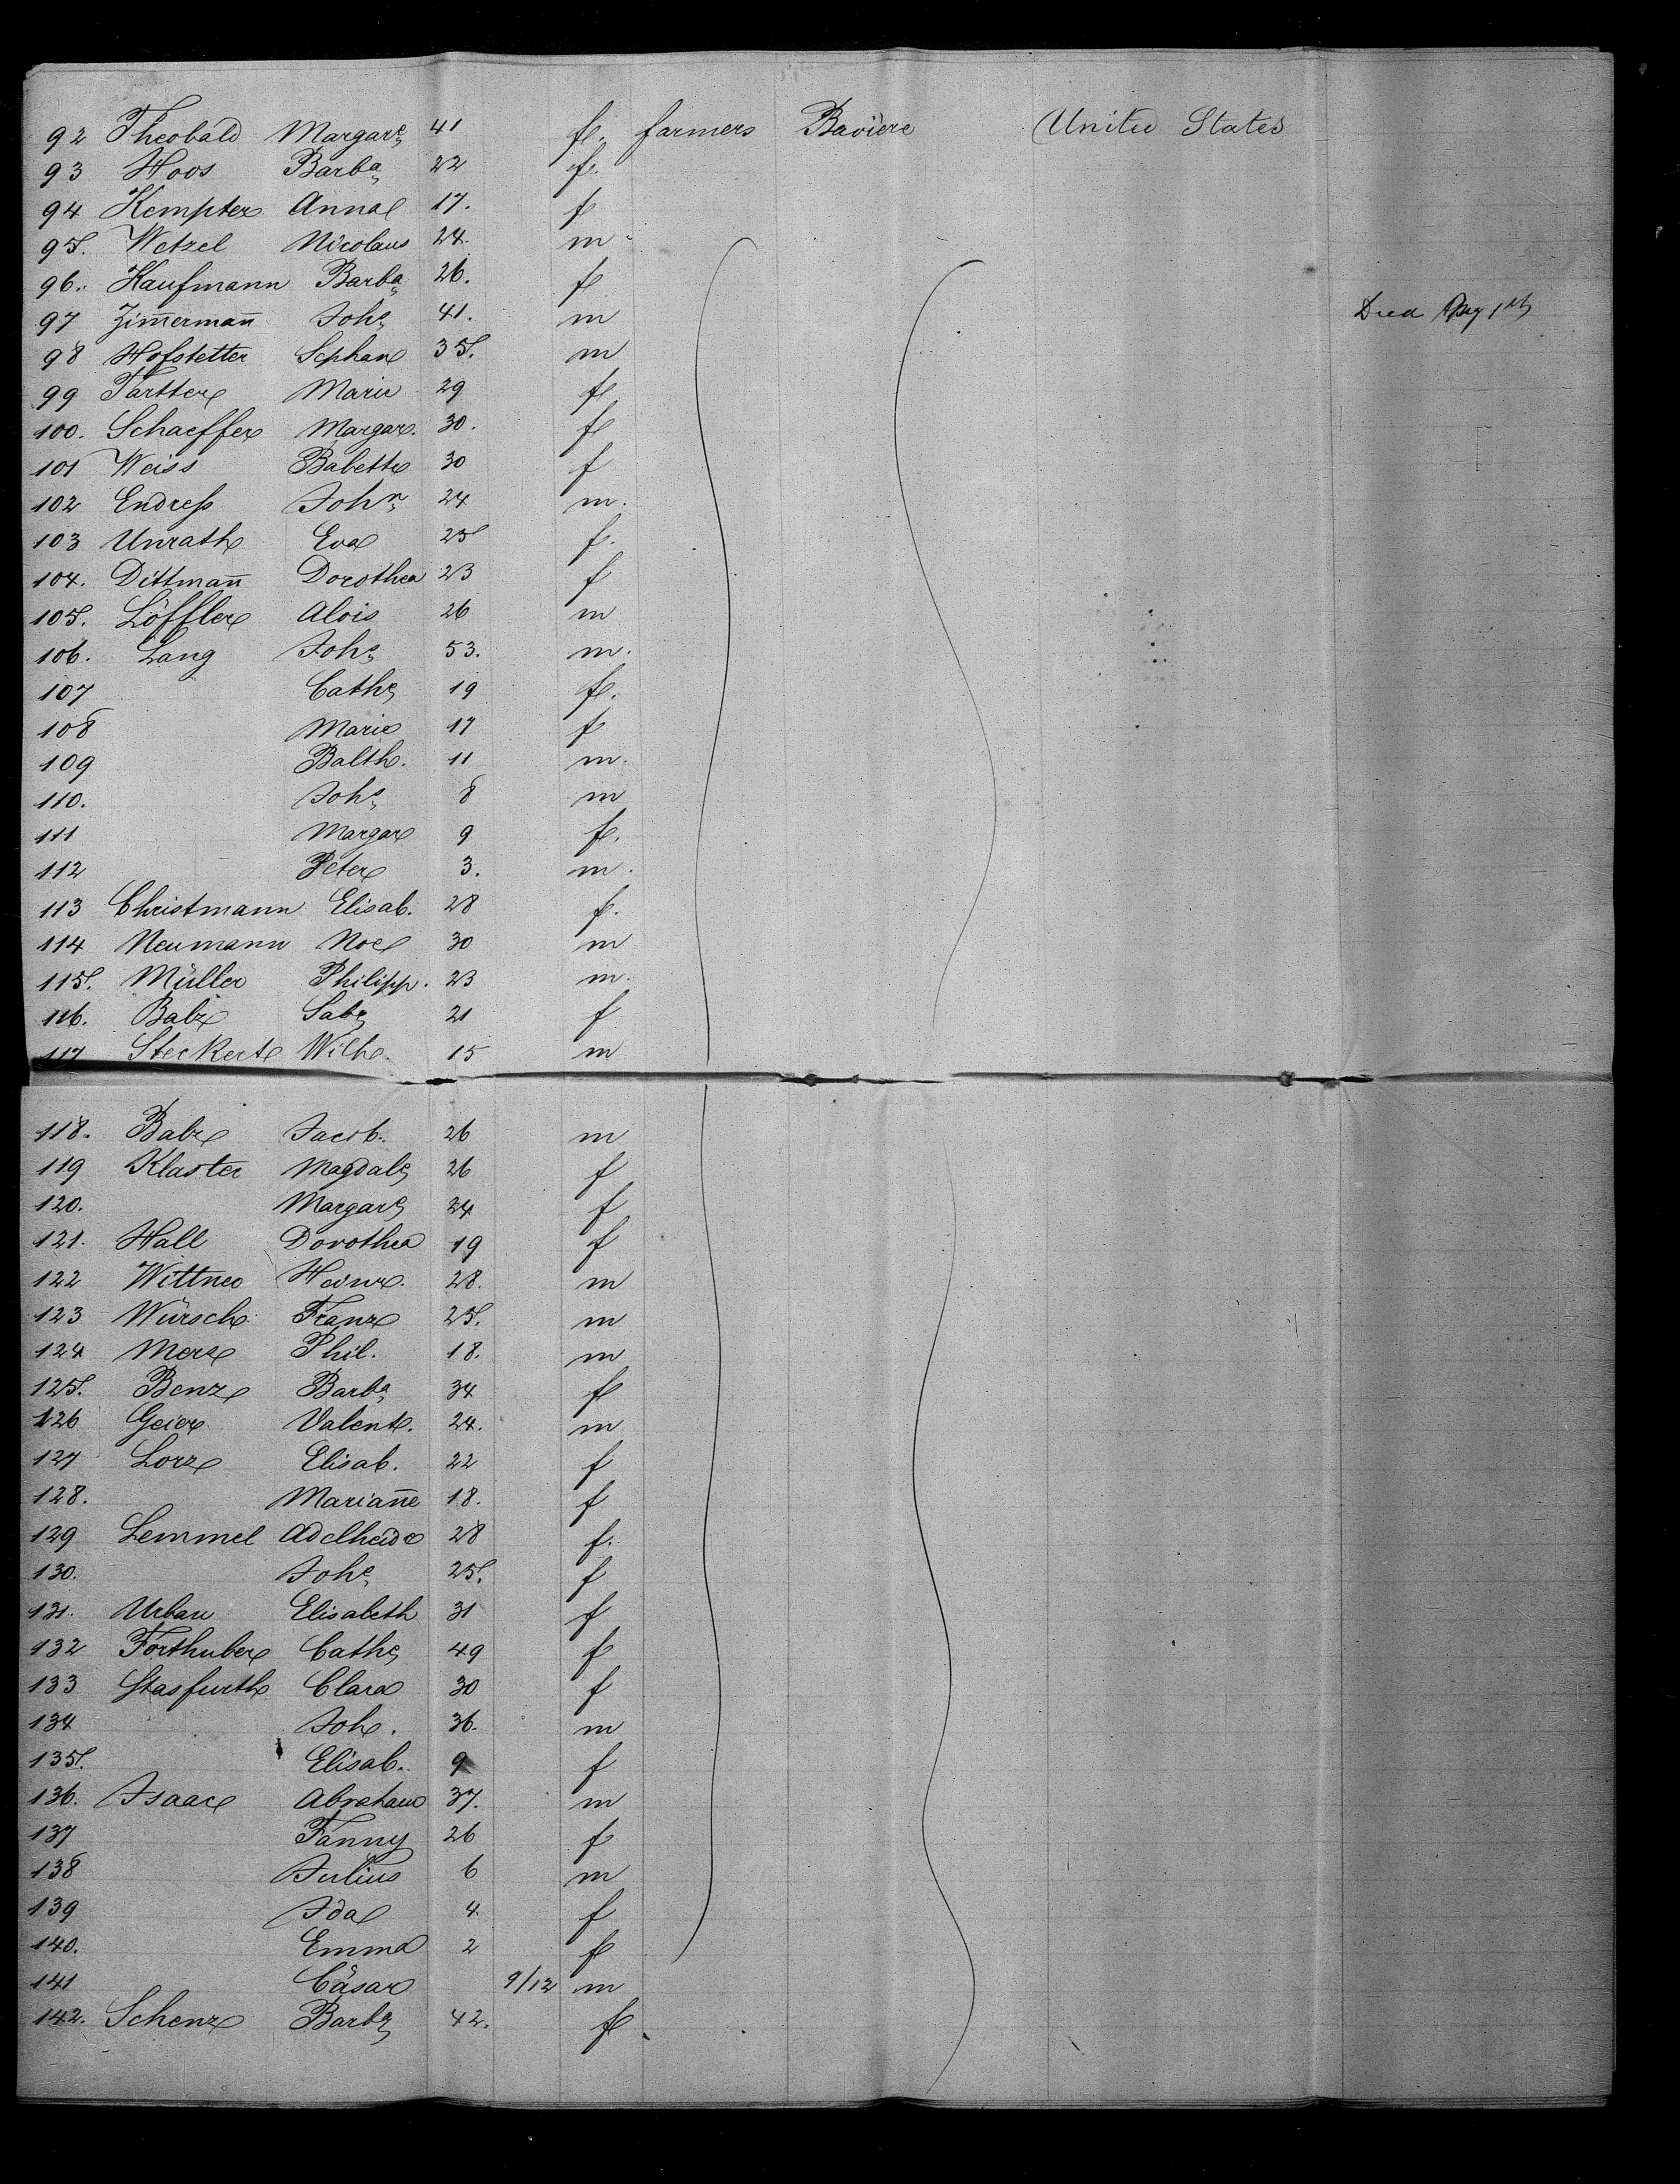 92 Theobald Margare 41 f. farmers Baviere United States
93 Hoos Barba 22 f.
94 Kempter Anna 17. f
95. Wetzel Nicolaus 24. m
96. Kaufmann Barba 26. f
97 Zim̄erman̄ Johs 41. m Died
98 Hofstetter Sephan 35. m
99 Tartter Marie 29 f
100. Schaeffer Margar. 30. f
101 Weiss Babette 30 f
102 Endreſs John 24 m.
103 Unrath Eva 25 f.
104. Dittman̄ Dorothea 23 f
105. Löffler Alois 26 m
106. Lang Johs 53. m.
107 Cathe 19 f.
108 Marie 17 f
109 Balth. 11 m.
110. Johs 8 m
111 Margar 9 f.
112 Peter 3. m.
113 Christmann Elisab. 28 f.
114 Neumann Noe 30 m
115. Müller Philipp. 23 m.
116. Balz Sab 21 f
117 Steckert Wilh. 15 m
118. Balz Jacob. 26 m
119 Klaster Magdale 26 f
120. Margare 24 f
121. Hall Dorothea 19 f
122 Wittner Heinr. 28. m
123 Würsch Franz 25. m
124 Merz Phil. 18. m
125. Benz Barba 34 f
126 Geier Valent. 24. m
127 Lorz Elisab. 22 f
128. Marian̄e 18. f
129 Lemmel Adelheid 28 f.
130. Johe 25. f
131. Urban Elisabeth 31 f
132 Forthuber Cathe 49 f
133 Stasfurth Clara 30 f
134 Joh. 36. m
135. Elisab. 9 f
136. Isaac Abraham 37. m
137 Fanny 26 f
138 Julius 6 m
139 Ida 4 f
140. Emma 2 f
141 Cäsar 9/12 m
142. Schenz Barba 42. f